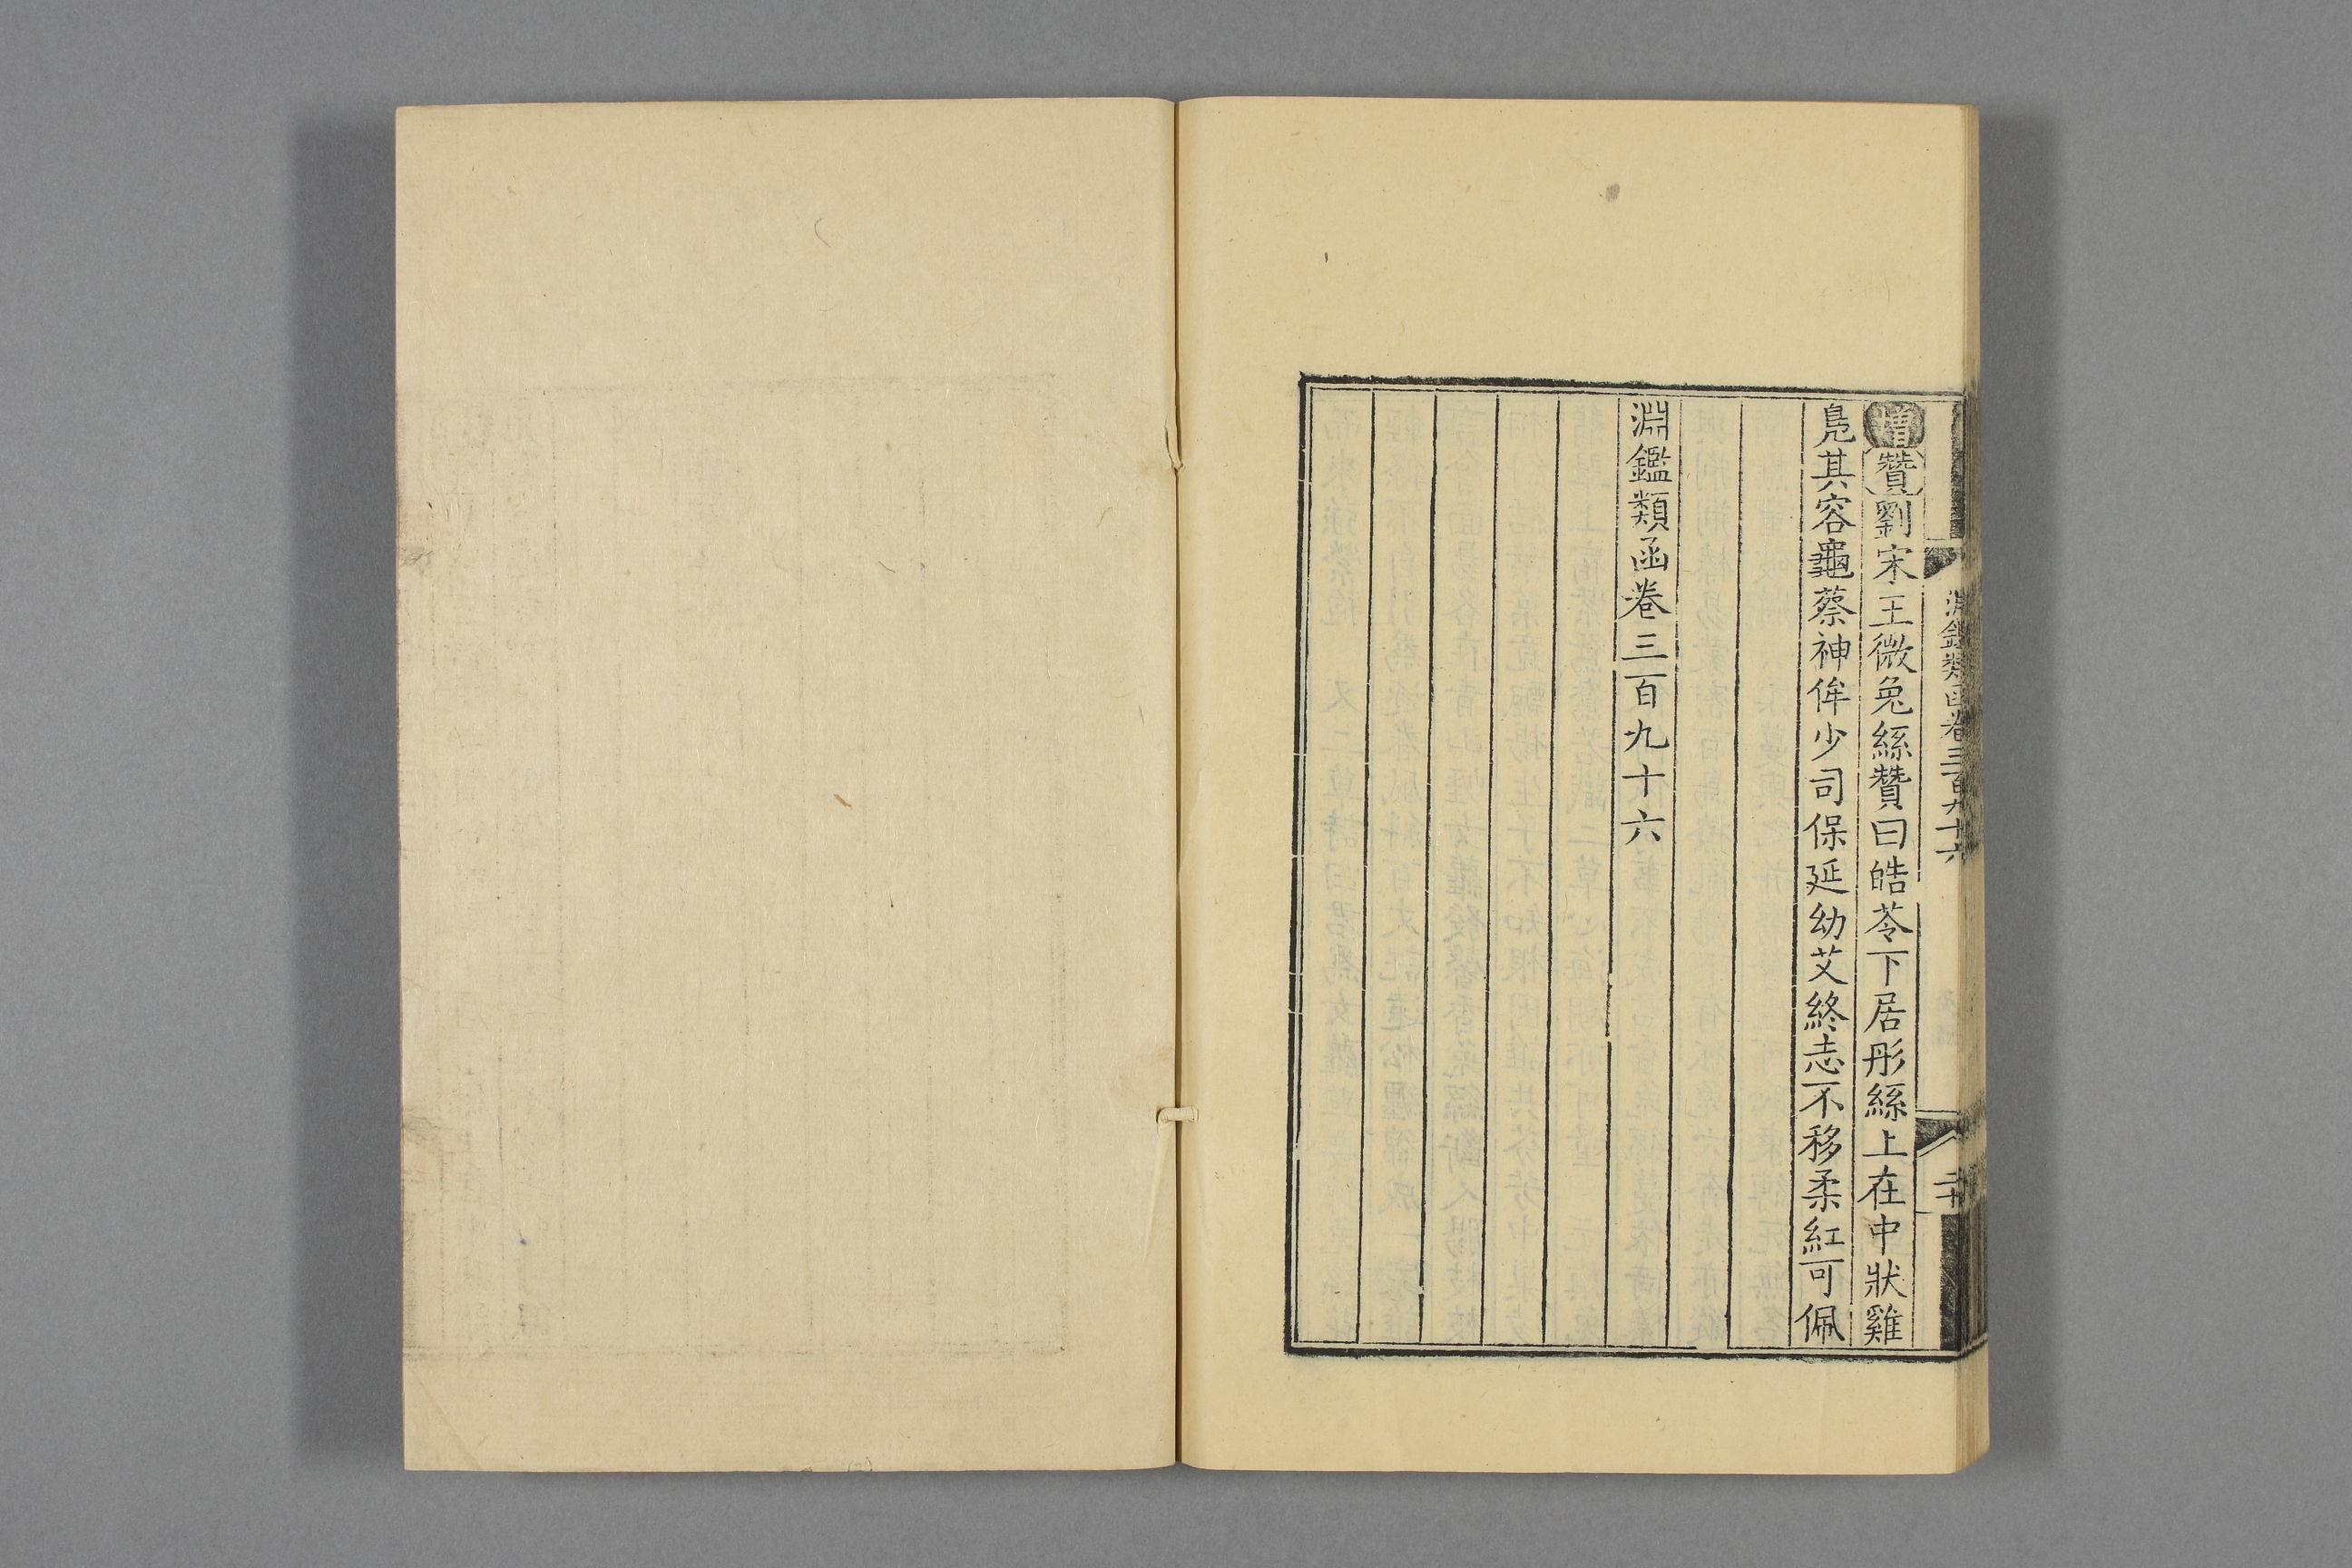 增贊劉宋王微兔絲贊曰皓苓下居彤絲上在中狀雞
鳧其容龜蔡神侔少司保延幼艾終志不移柔紅可佩
淵鑑類函卷三百九十六
淵鑑類函卷三百九十六
二十